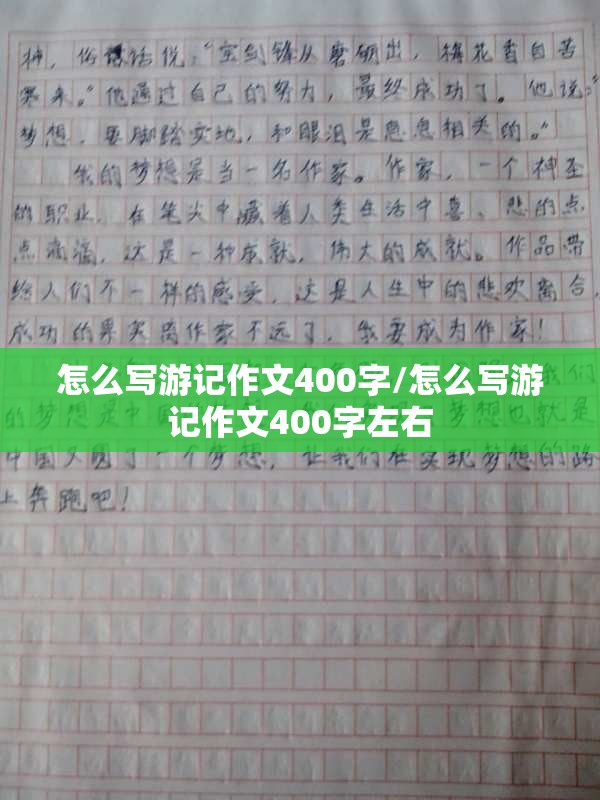 神，俗话说："宝剑锋从磨砺出，梅花香自苦
寒来。"他通过自己的努力，最终成功了。他说："
梦想，要脚踏实地，和眼泪是息息相关的。"
我的梦想是当一名作家。作家，一个神圣
的职业，在笔尖中藏着人类生活中喜、悲的点
点滴滴，这是一种成就，伟大的成就。作品带
给人们不一样的感受，这是人生中的悲欢离合，
成功的果实离作家不远了，我要成为作家！
怎么写游记作文400字/怎么写游
记作文400字左右
中国又圆了一个梦想，让我们在实现梦想的路
上奔跑吧！